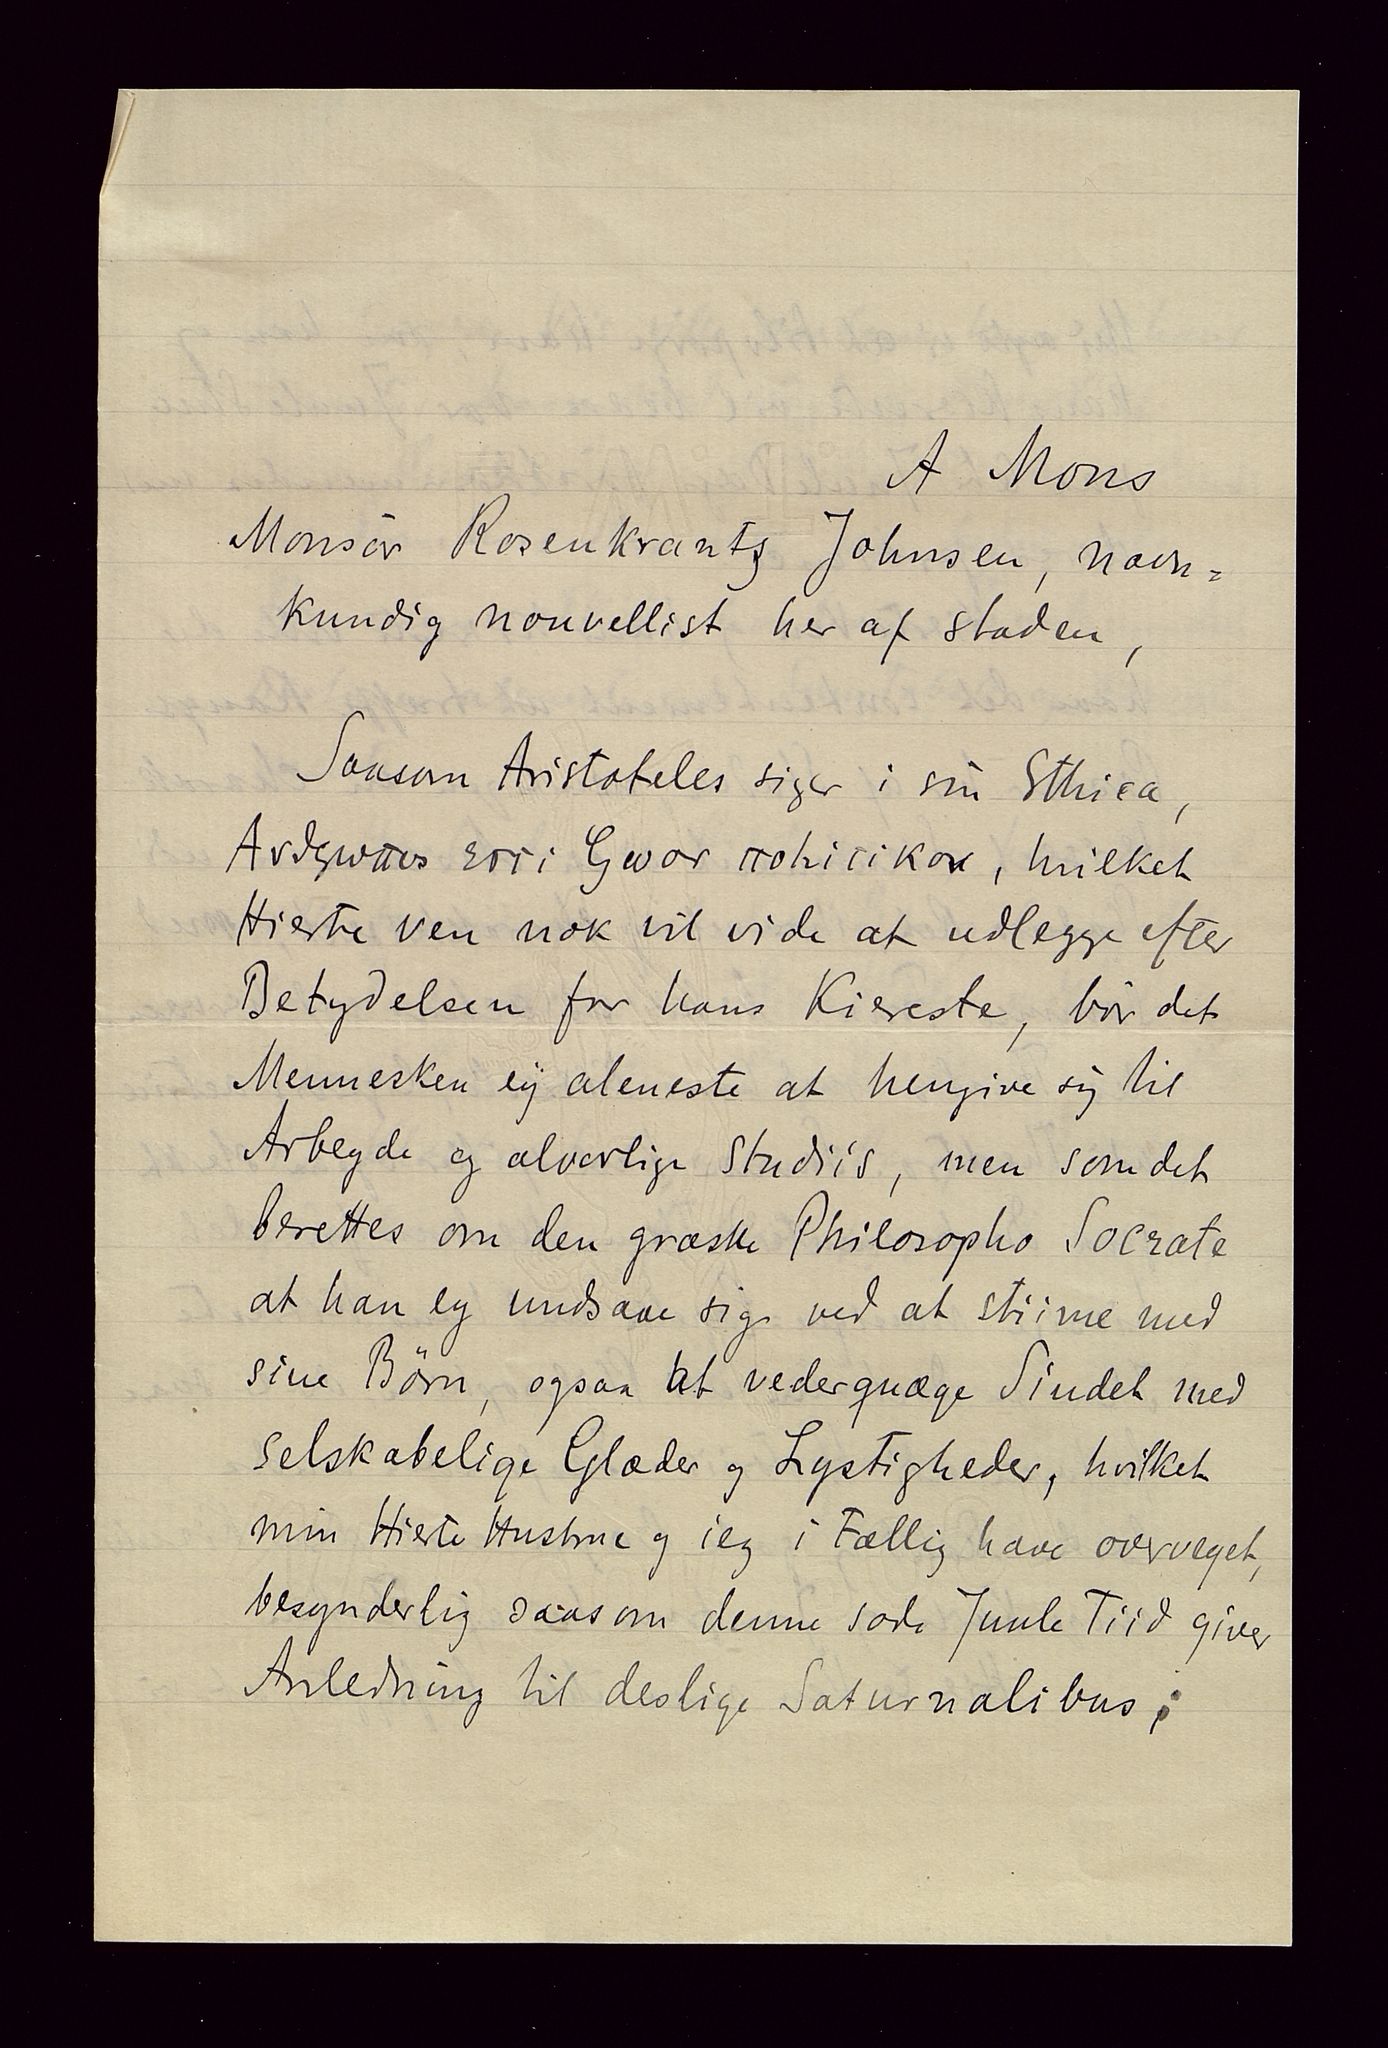 A Mons
Monsör Rosenkrantz Johnsen, navn=
kundig nouvellist her af staden,
Saasom Aristoteles siger i sin Ethica,
hvilket
Hierte ven nok vil vide at udlegge efter
Betydelsen for hans Kiereste, bör det
Mennesken eÿ aleneste at hengive sig til
Arbeyde og alvorlige Studiis, men som det
berettes om den græske Philosopho Socrate
at han ey undsaae sig ved at stiime med
sine Börn, ogsaa at vederquæge Sindet med
Selskabelige Glæder og Lystigheder, hvilket
min Hierte Hustrue og ieg i Fællig have overveget,
besynderlig saasom denne söde Juule Tiid giver
Anledning til deslige Saturnalibus;